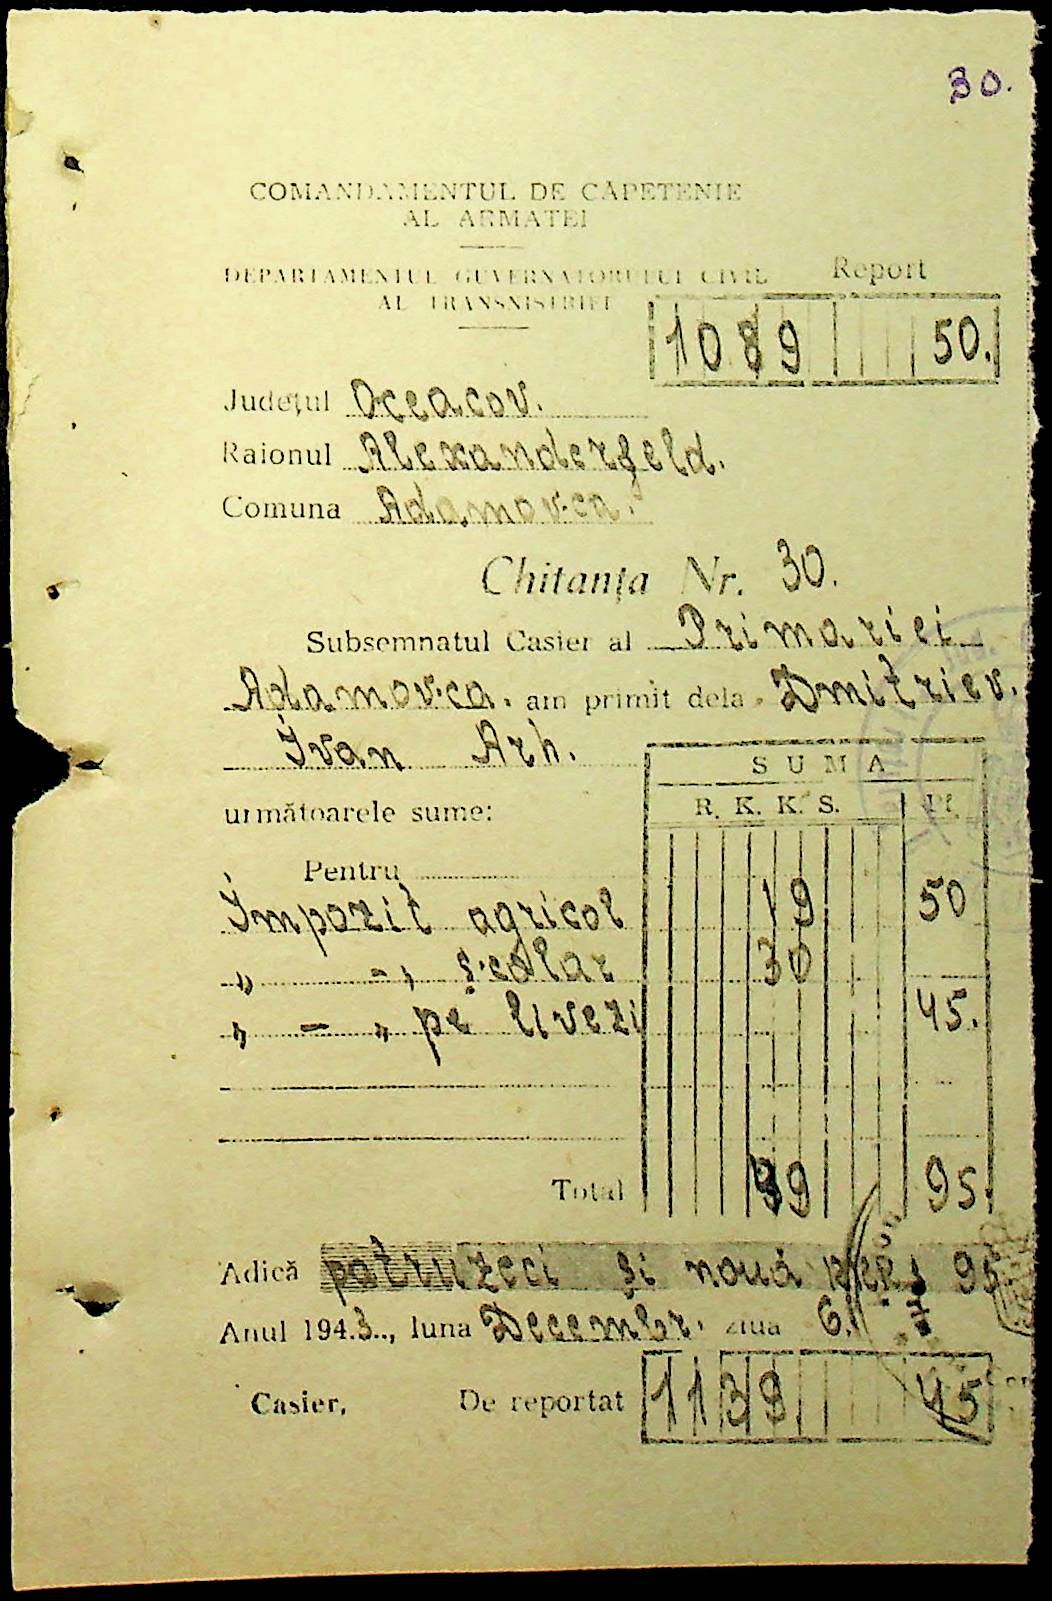 30.
COMANDAMENTUL DE CĂPETENIE
AL ARMATEI
DEPARTAMENTUL GUVERNATORULUI CIVIL
AL TRANSNISTRIEI
Report
1089 50.
Județul Oceacov.
Raionul Alexanderfeld.
Comuna Adamovca.
Chitanța Nr. 30.
Subsemnatul Casier al Primariei
Adamovca. am primit dela Dmitriev.
Ivan Arh.
SUMA
următoarele sume: R. K. K. S. Pf.
Pentru
Impozit agricol 19 50
„ - „ școlar 30
„ - „ pe livezi 45.
Total 49 95.
Adică patruzeci și nouă 95
Anul 1943., luna Decembr. ziua 6.
Casier, De reportat 1139 45